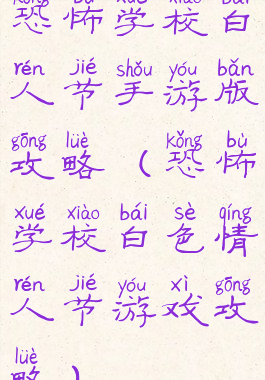 kǒng bù xué xiào bái
恐怖学校白
rén jié shǒu yóu bǎn
人节手游版
gōng lüè kǒng bù
攻略（恐怖
xué xiào bái sè qíng
学校白色情
rén jié yóu xì gōng
人节游戏攻
lüè
略）